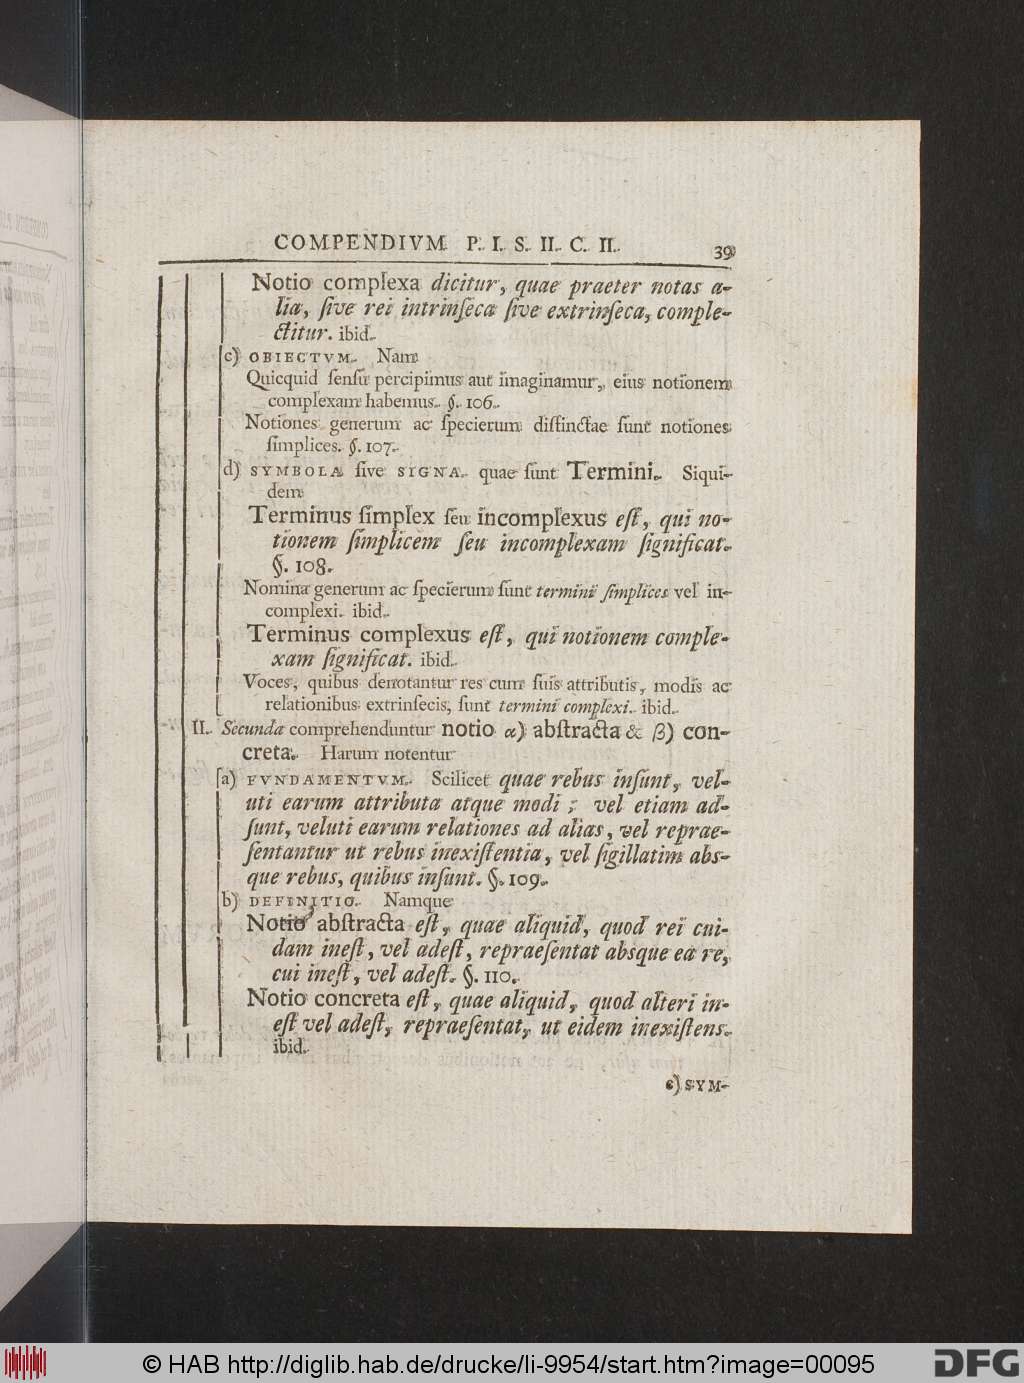 COMPENDIVM P. I. S. II. C. II. 39
Notio complexa dicitur, quae praeter notas a-
lia, ſive rei intrinſeca ſive extrinſeca, comple-
ctitur. ibid.
c) OBIECTVM. Nam
Quicquid ſenſu percipimus aut imaginamur, eius notionem
complexam habemus. §. 106.
Notiones generum ac ſpecierum diſtinctae ſunt notiones
ſimplices. §. 107.
d) SYMBOLA ſive SIGNA. quae ſunt Termini. Siqui-
dem
Terminus ſimplex ſeu incomplexus eſt, qui no-
tionem ſimplicem ſeu incomplexam ſignificat.
§. 108.
Nomina generum ac ſpecierum ſunt termini ſimplices vel in-
complexi. ibid.
Terminus complexus eſt, qui notionem comple-
xam ſignificat. ibid.
Voces, quibus denotantur res cum ſuis attributis, modis ac
relationibus extrinſecis, ſunt termini complexi. ibid.
II. Secunda comprehenduntur notio α) abſtracta & β) con-
creta. Harum notentur
a) FVNDAMENTVM. Scilicet quae rebus inſunt, vel-
uti earum attributa atque modi ; vel etiam ad-
ſunt, veluti earum relationes ad alias, vel reprae-
ſentantur ut rebus inexiſtentia, vel ſigillatim abs-
que rebus, quibus inſunt. §. 109.
b) DEFINITIO. Namque
Notio abſtracta eſt, quae aliquid, quod rei cui-
dam ineſt, vel adeſt, repraeſentat absque ea re,
cui ineſt, vel adeſt. §. 110.
Notio concreta eſt, quae aliquid, quod alteri in-
eſt vel adeſt, repraeſentat, ut eidem inexiſtens.
ibid.
c) SYM-
© HAB http://diglib.hab.de/drucke/li-9954/start.htm?image=00095
DFG